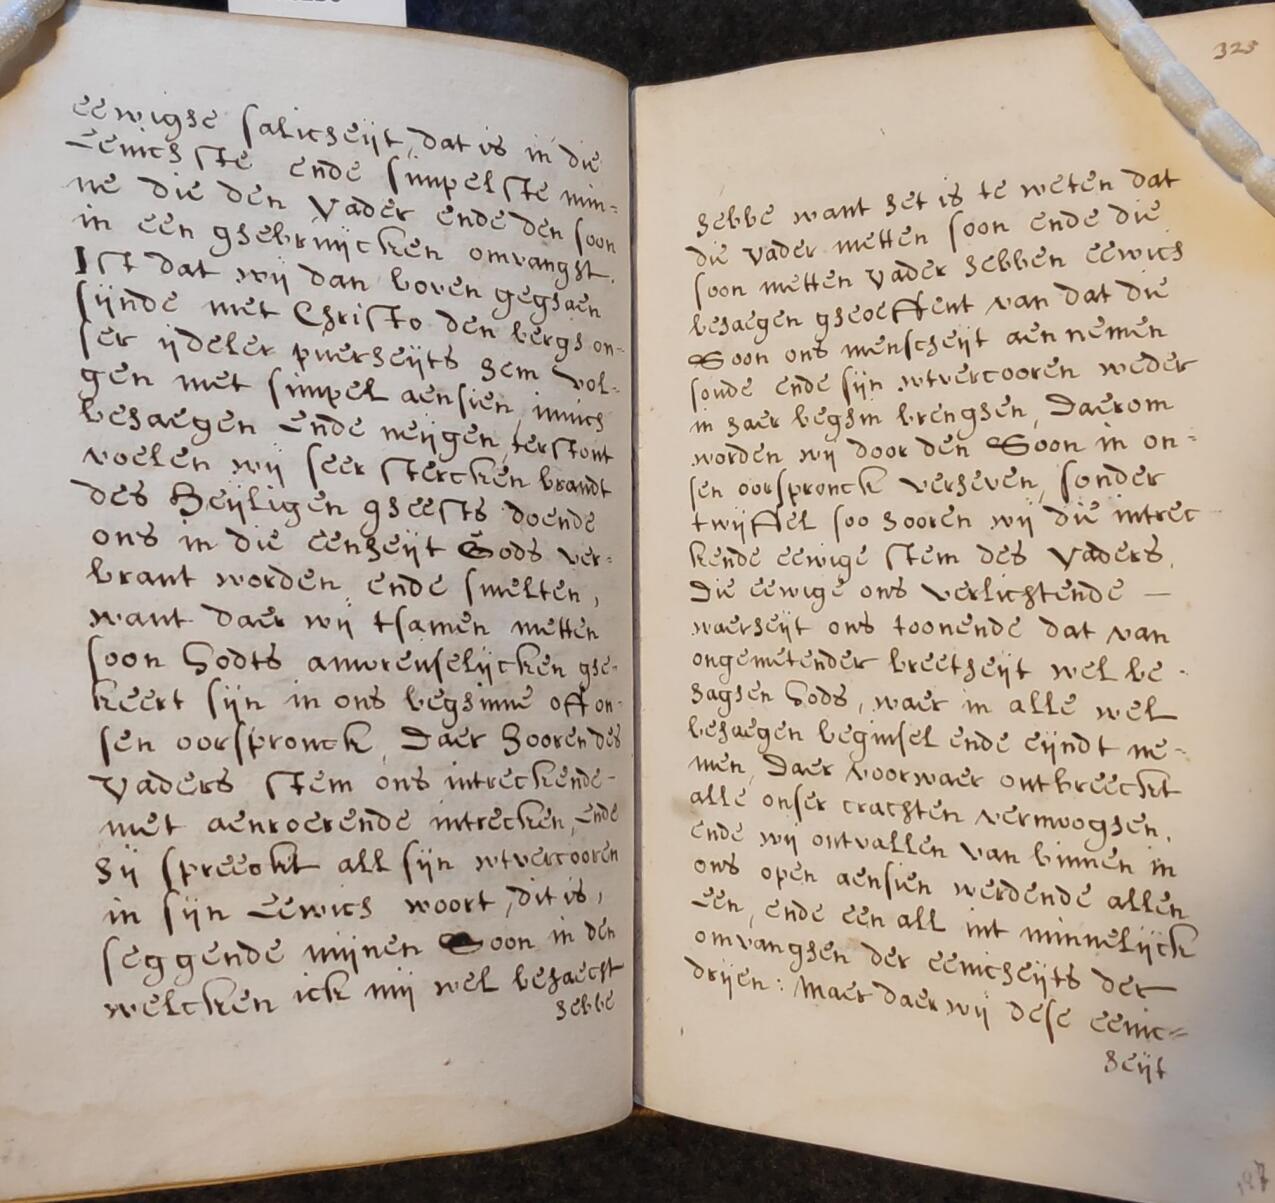 eewighe salicheijt, dat is in die
Eenichste ende simpelste min=
ne die den Vader ende den soon
in een ghebruijcken omvanght.
Ist dat wij dan boven geghaen
sijnde met Christo den bergh on-
ser ijdeler puerheijts hem vol-
gen met simpel aensien, innich
behaegen Ende neijgen, terstont
voelen wij seer stercken brandt
des Heijligen gheests doende
ons in die eenheijt Gods ver-
brant worden, ende smelten,
want daer wij tsamen metten
soon Godts aenwenselijcken ghe-
keert sijn in ons beghinne off on-
sen oorspronck, Daer hooren des
Vaders stem ons intreckende-
met aenroerende intrecken, Ende
hij spreeckt all sijn wtvercooren
in sijn Eewich woort, dit is,
seggende mijnen Soon in den
welcken ick mij wel behaecht
hebbe
323
hebbe want het is te weten dat
die Vader metten soon ende die
soon metten Vader hebben eewich
behaegen gheoeffent van dat die
Soon ons menscheijt aennemen
soude ende sijn wtvercooren weder
in haer beghin brenghen, Daerom
worden wij door den Soon in on-
sen oorspronck verheven, sonder
twijffel soo hooren wij die intrec
kende eewige stem des Vaders,
Die eewige ons verlichtende —
waerheijt ons toonende dat van
ongemetender breetheijt wel be-
haghen Gods, waer in alle wel
behaegen beginsel ende eijndt ne-
men, Daer voorwaer ontbreeckt
alle onser crachten vermooghen,
ende wij ontvallen van binnen in
ons open aensien werdende allen
Een, ende een all int minnelijck
omvanghen der eenicheijts der
drijen: Maer daer wij dese eenic=
heijt